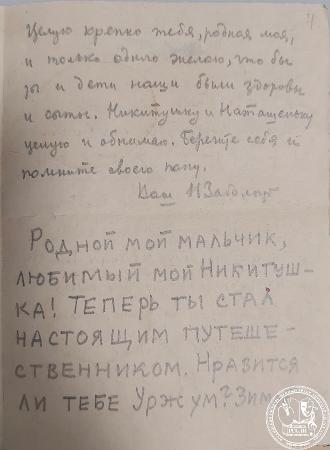 4
Целую крепко тебя, родная моя,
и только одного желаю, что бы
ты и дети наши были здоровы
и сыты. Никитушку и Наташеньку
целую и обнимаю. Берегите себя и
помните своего папу.
Ваш Н Заболоц
Родной мой мальчик,
любимый мой Никитуш-
ка! Теперь ты стал
настоящим путеше-
ственником. Нравится
ли тебе Уржум? Зим